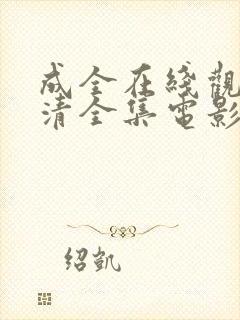 成全在綫觀
清全集電影
绍凯